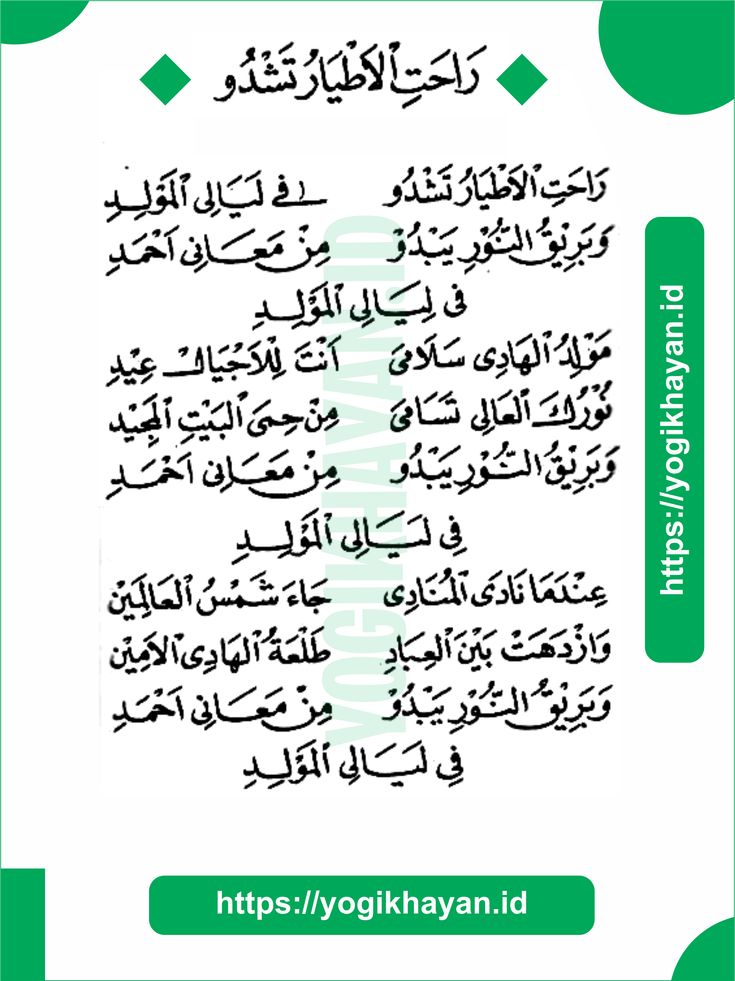 رَاحَتِ الْاَطْيَارُ تَشْدُو
رَاحَتِ الْاَطْيَارُ تَشْدُو فِي لَيَالِى الْمَوْلِدِ
وَبَرِيْقُ النُّوْرِ يَبْدُوْ مِنْ مَعَانِى اَحْمَدِ
فِى لِيَالِى الْمَوْلِدِ
مَوْلِدُ الْهَادِى سَلَامِى اَنْتَ لِلْاَجْيَالِ عِيْدِ
نُوْرُكَ الْعَالِى تَسَامَى مِنْ حِمَى الْبَيْتِ الْمَجِيْدِ
وَبَرِيْقُ النُّوْرِ يَبْدُو مِنْ مَعَانِى اَحْمَدِ
فِى لَيَالِى الْمَوْلِدِ
عِنْدَمَا نَادَى الْمُنَادِى جَاءَ شَمْسُ الْعَالَمِيْنْ
وَازْدَهَتْ بَيْنَ الْعِبَادِ طَلْعَةُ الْهَادِى الْاَمِيْنْ
وَبَرِيْقُ النُّوْرِ يَبْدُوْ مِنْ مَعَانِى اَحْمَدِ
فِى لَيَالِى الْمَوْلِدِ
YOGIKHAYAN.ID
https://yogikhayan.id
https://yogikhayan.id